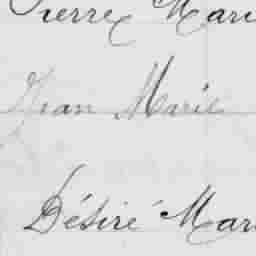 Pierre Mari
Jean Marie
Désiré Mar